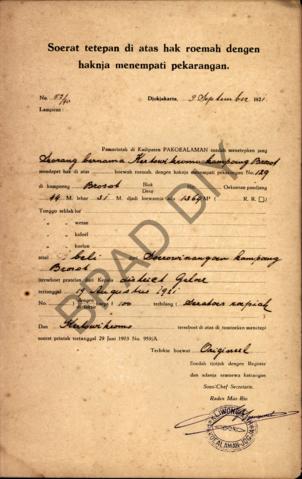 Soerat tetepan di atas hak roemah dengen
haknja menempati pekarangan.
No. 82/40 Djokjakarta, 9 September 1921.
Lampiran :
Pamerintah di Kadipaten PAKOEALAMAN soedah menetepken jang
Seorang bernama Kertowikromo kampoeng Brosot
mendapet hak di atas roemah dengen haknja menempati pekarangan No. 129
di kampoeng Brosot Blok Desa Oekoeran pandjang
44 M. lebar 31 M. djadi loewasnja ada 1364 M² ( R. R. )
Tenggo seklah lor
" wetan
" kidoel
" koelon
asal beli kampoeng
Brosot
terseboet priatan dari Kepala district Galoer
tertanggal 19 Augustus 1921
No. harga f 100 terbilang Seratoes roepiah
Dan Kertowikromo terseboet di atas di toentoetken menetepi
soerat priatah tertanggal 29 Juni 1915 No. 959/A
Terboekoe boewat Origineel
Soedah tjotjok dengen Register
dan adanja soerat keterangan
Sous-Chef Secretarie.
Raden Mas Rio
KLIWONGAN
PAKOEALAMAN-JOGJA
BPAD DIY